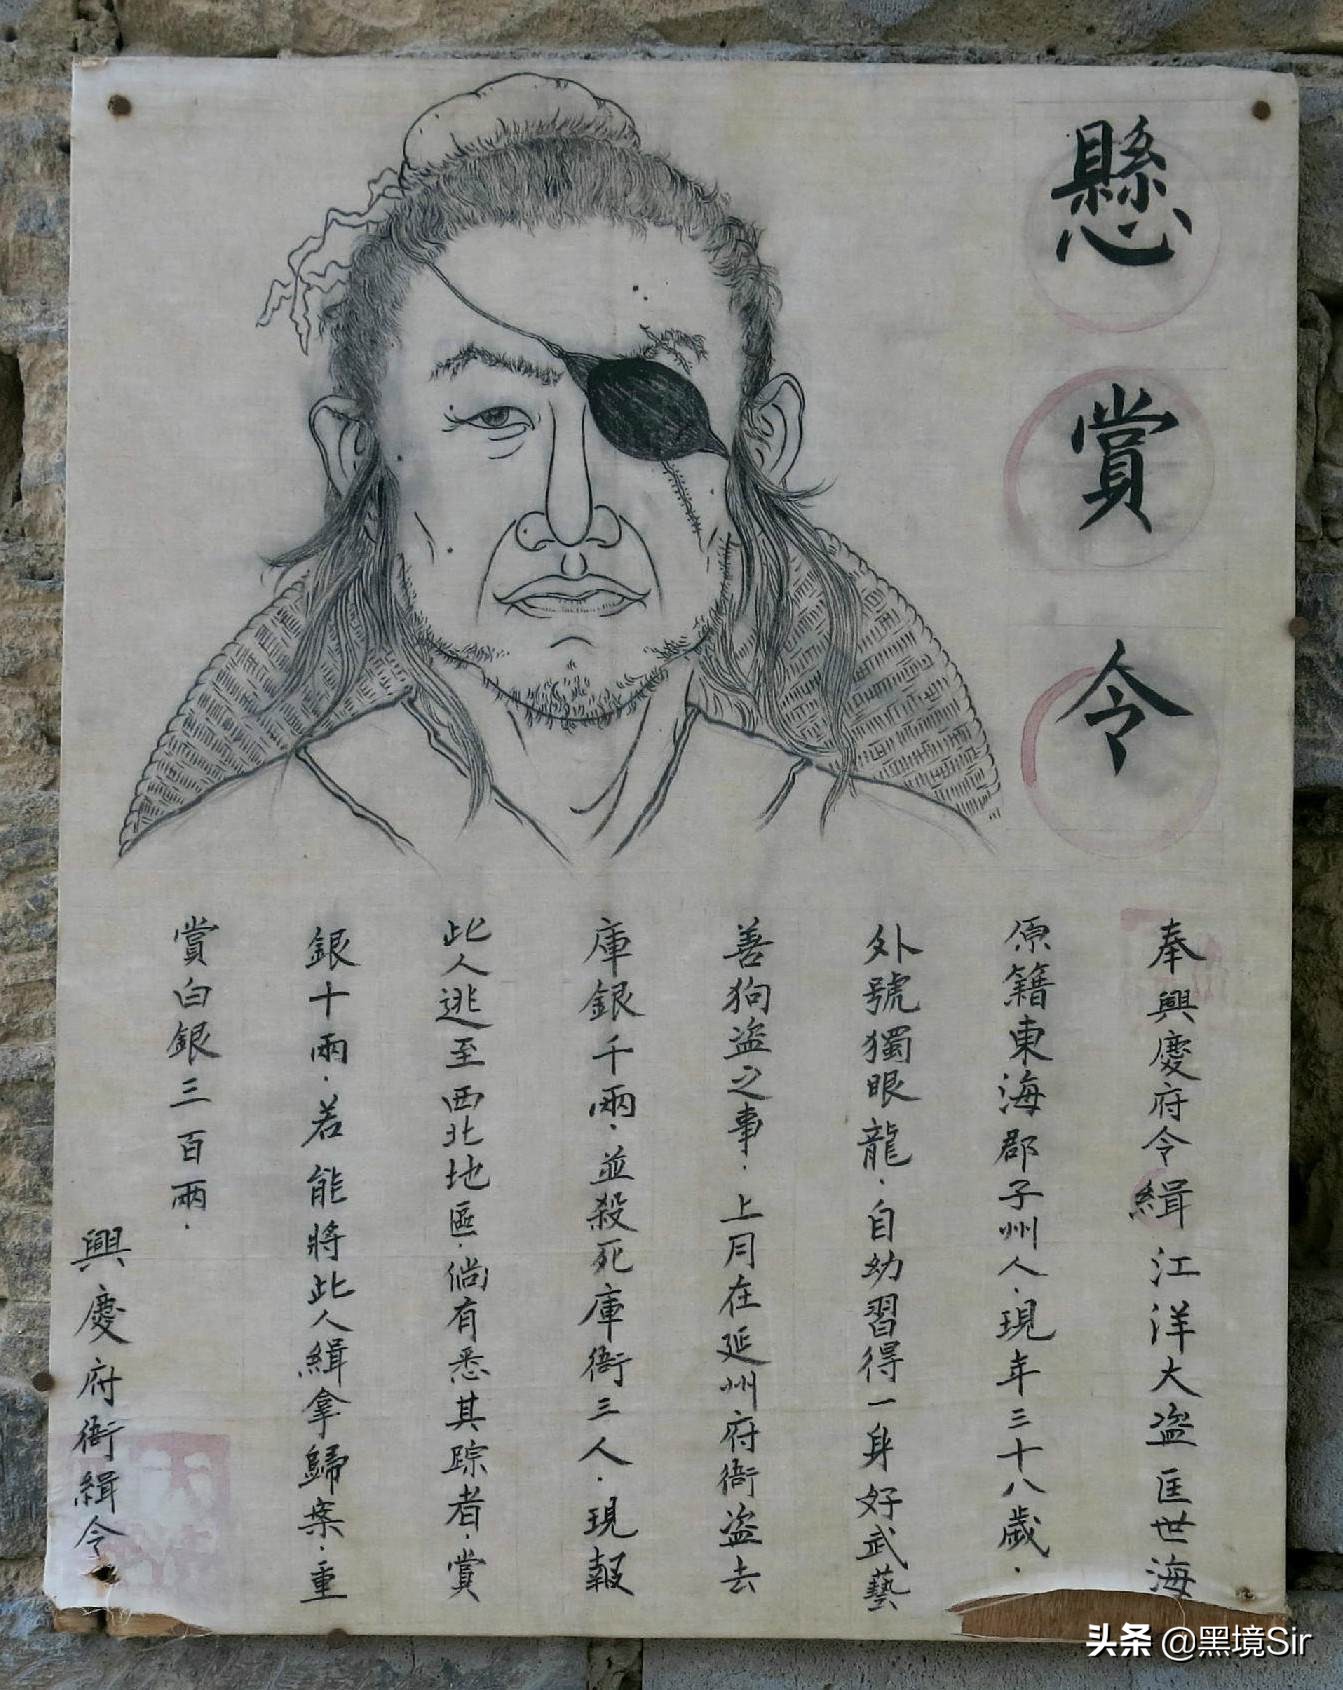 懸賞令
奉興慶府令緝江洋大盗匡世海
原籍東海郡子州人.現年三十八歲.
外號獨眼龍.自幼習得一身好武藝
善狗盗之事.上月在延州府衙盗去
庫銀千兩.並殺死庫衙三人.現報
此人逃至西北地區.倘有悉其踪者.賞
銀十兩.若能將此人緝拿歸案.重
賞白銀三百兩.
興慶府衙緝令
头条 @黑境Sir